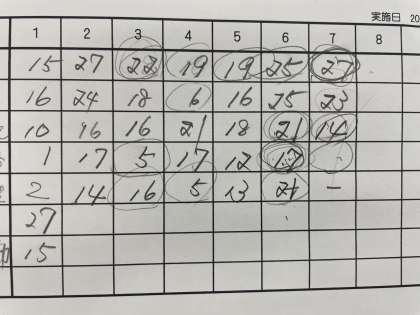 実施日 20
1 2 3 4 5 6 7 8
15 27 22 19 19 25 27
16 24 18 6 16 25 23
10 16 16 21 18 21 14
1 17 5 17 12 17
2 14 16 5 13 21 -
27
15